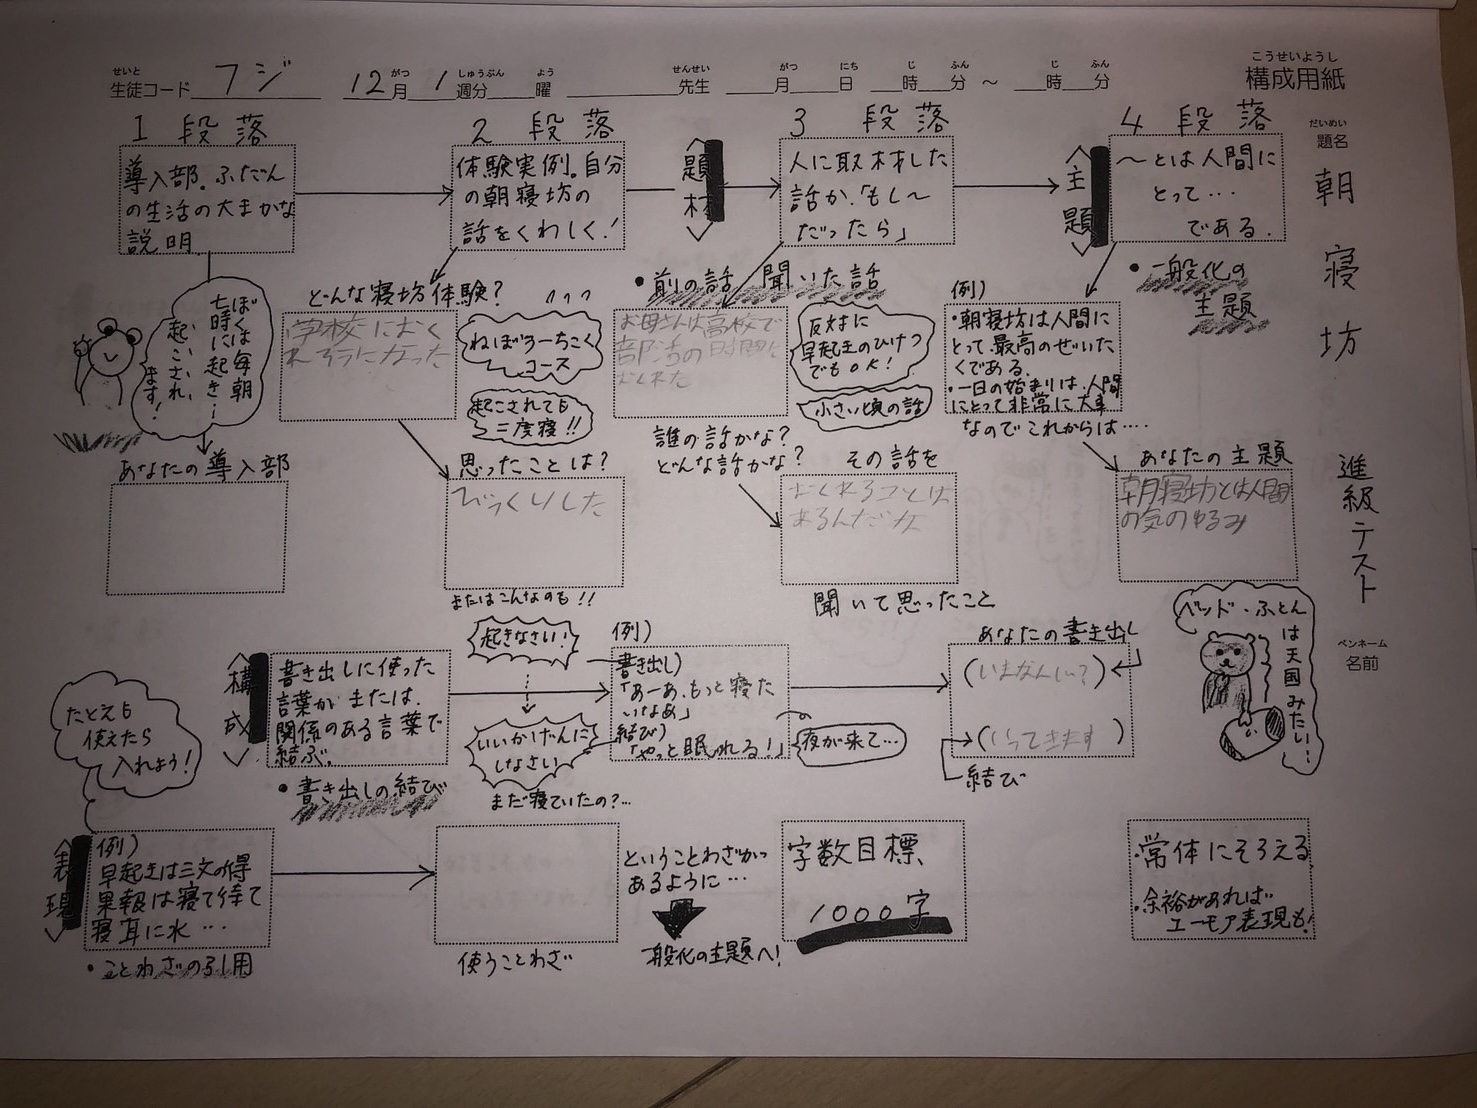 せいと
生徒コード フジ
がつ しゅうぶん よう
12月 1 週分 曜
せんせい
先生
がつ にち じ ふん じ ふん
月 日 時 分 ～ 時 分
こうせいようし
構成用紙
だいめい
題名
朝寝坊
進級テスト
ペンネーム
名前
1 段落
導入部。ふだん
の生活の大まかな
説明
2 段落
体験実例。自分
の朝寝坊の
話をくわしく！
＜題材＞
3 段落
人に取材した
話か、「もし～
だったら」
＜主題＞
4 段落
～とは人間に
とって…
である。
ぼくは毎朝
七時に起き…
起こされ、
ます！
どんな寝坊体験？
学校におく
れそうになった
ねぼうーちこく
コース
起こされても
二度寝!!
・前の話 聞いた話
お母さんは高校で
部活の時間に
おくれた
反対に
早起きのひけつ
でもOK！
小さい頃の話
・一般化の
主題
例）
・朝寝坊は人間に
とって最高のぜいた
くである。
・一日の始まりは、人間
にとって非常に大事
なのでこれからは….
あなたの導入部
思ったことは？
びっくりした
またはこんなのも!!
誰の話かな？
どんな話かな？
その話を
おくれることは
あるんだな
聞いて思ったこと
あなたの主題
朝寝坊とは人間
の気のゆるみ
ベッド・ふとん
は天国みたい…
たとえも
使えたら
入れよう！
＜構成＞
書き出しに使った
言葉か または、
関係のある言葉で
結ぶ。
・書き出しの結び
起きなさい！
いいかげんに
しなさい
まだ寝ていたの？…
例）
書き出し）
「あーあ、もっと寝た
いなあ」
結び）
「やっと眠れる！」
夜が来て…
あなたの書き出し
（いまなんじ？）
（いってきます）
結び
＜表現＞
例）
早起きは三文の得
果報は寝て待て
寝耳に水…
・ことわざの引用
使うことわざ
ということわざが
あるように…
一般化の主題へ！
字数目標、
1000字
・常体にそろえる
・余裕があれば
ユーモア表現も！